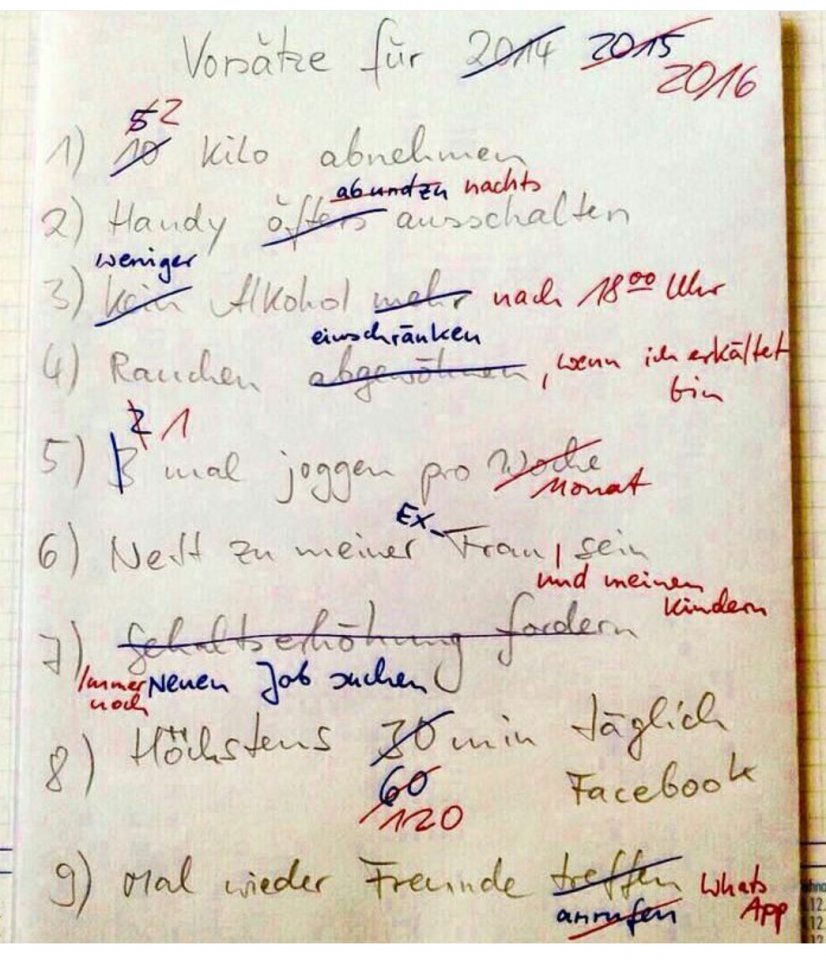 Vorsätze für 2014 2015
2016
5 2
1) 10 Kilo abnehmen
ab und zu nachts
2) Handy öfters ausschalten
weniger
3) Kein Alkohol mehr nach 18⁰⁰ Uhr
einschränken
4) Rauchen abgewöhnen, wenn ich erkältet
bin
2 1
5) 3 mal joggen pro Woche
Monat
Ex-
6) Nett zu meiner Frau, sein
und meinen
Kindern
7) Gehaltserhöhung fordern
Immer noch Neuen Job suchen
8) Höchstens 30 min täglich
60 Facebook
120
9) Mal wieder Freunde treffen Whats
anrufen App